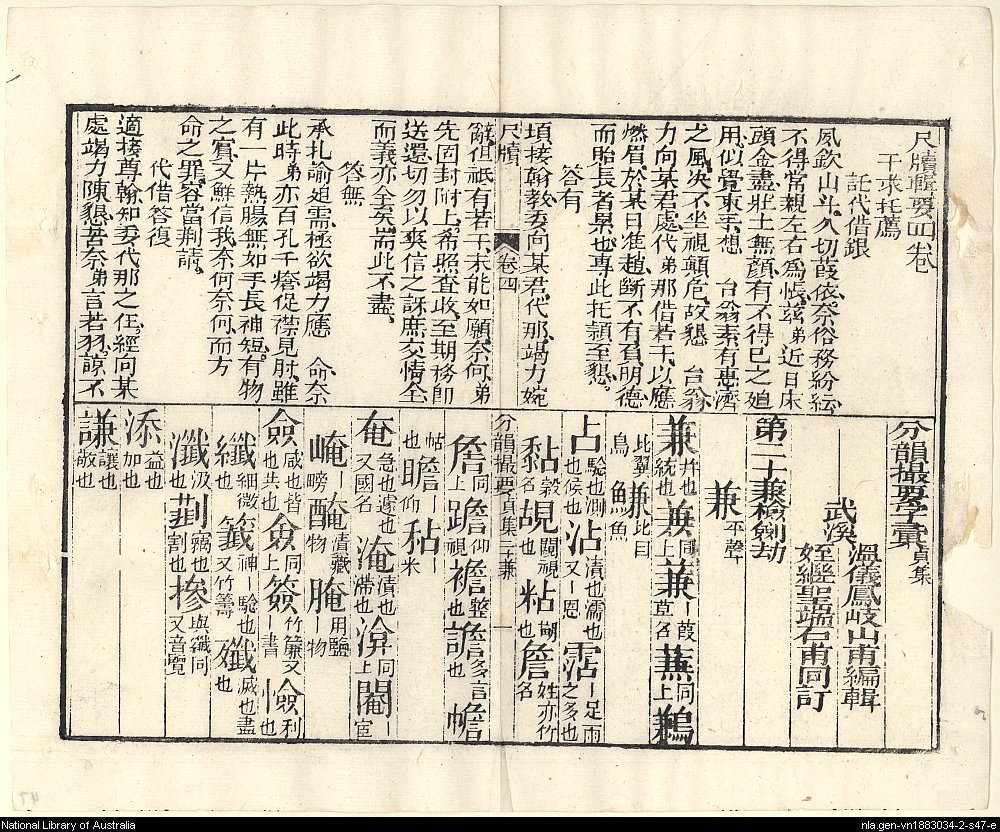 尺牘輯要四卷
干求托薦
託代借銀
夙欽山斗久切葭依奈俗務紛紜
不得常親左右為悵茲弟近日床
頭金盡壯士無顏有不得已之廹
用似覺束手想 台翁素有惠濟
之風决不坐視顛危故懇 台翁
力向某君處代弟那借若干以應
燃眉於某日准趙斷不有負明德
而貽長者累也專此托頴至懇
答有
頃接翰教委向某君代那竭力婉
尺牘 卷四
辭但祇有若干未能如願奈何弟
先固封附上希照查收至期務即
送還切勿以爽信之訝庶交情全
而義亦全矣耑此不盡
答無
承扎諭追需極欲竭力應 命奈
此時弟亦百孔千瘡促襟見肘雖
有一片熱腸無如手長袖短有物
之實又鮮信我奈何奈何而方
命之罪容當荆請
代借答復
適接尊翰知委代那之任經向某
處竭力陳懇若奈弟言若羽諒不
分韻撮要字彙貞集
武溪 溫儀鳳岐山甫編輯
姪繼聖端石甫同訂
第二十兼檢劍劫
兼平聲
兼并也統也 蒹同上 蒹丨葭草名 蕪同上 鶼
比翼鳥 鰜比目魚
占騐也測也候也 沾漬也濡也又丨恩 霑丨足雨之多也
黏糓也 覘闚視也 粘餬也 詹姓亦竹名
分韻撮要 貞集二十兼
詹同上 蹌仰視 襜整也 譫多言也 幨
帖也 瞻丨仰 秥丨米
奄急也遽也又國名 淹漬也滯也 渰同上 閹丨宦
崦丨嵫 醃漬藏物 腌用鹽丨物
僉咸也皆也共也 僉同上 簽竹簾又丨書 憸利也
纖細微也 籤神丨騐也又竹籌 殲滅也盡也
瀸汲也 劗竊也割也 摻與纖同又音覽
添益也加也
謙讓也敬也